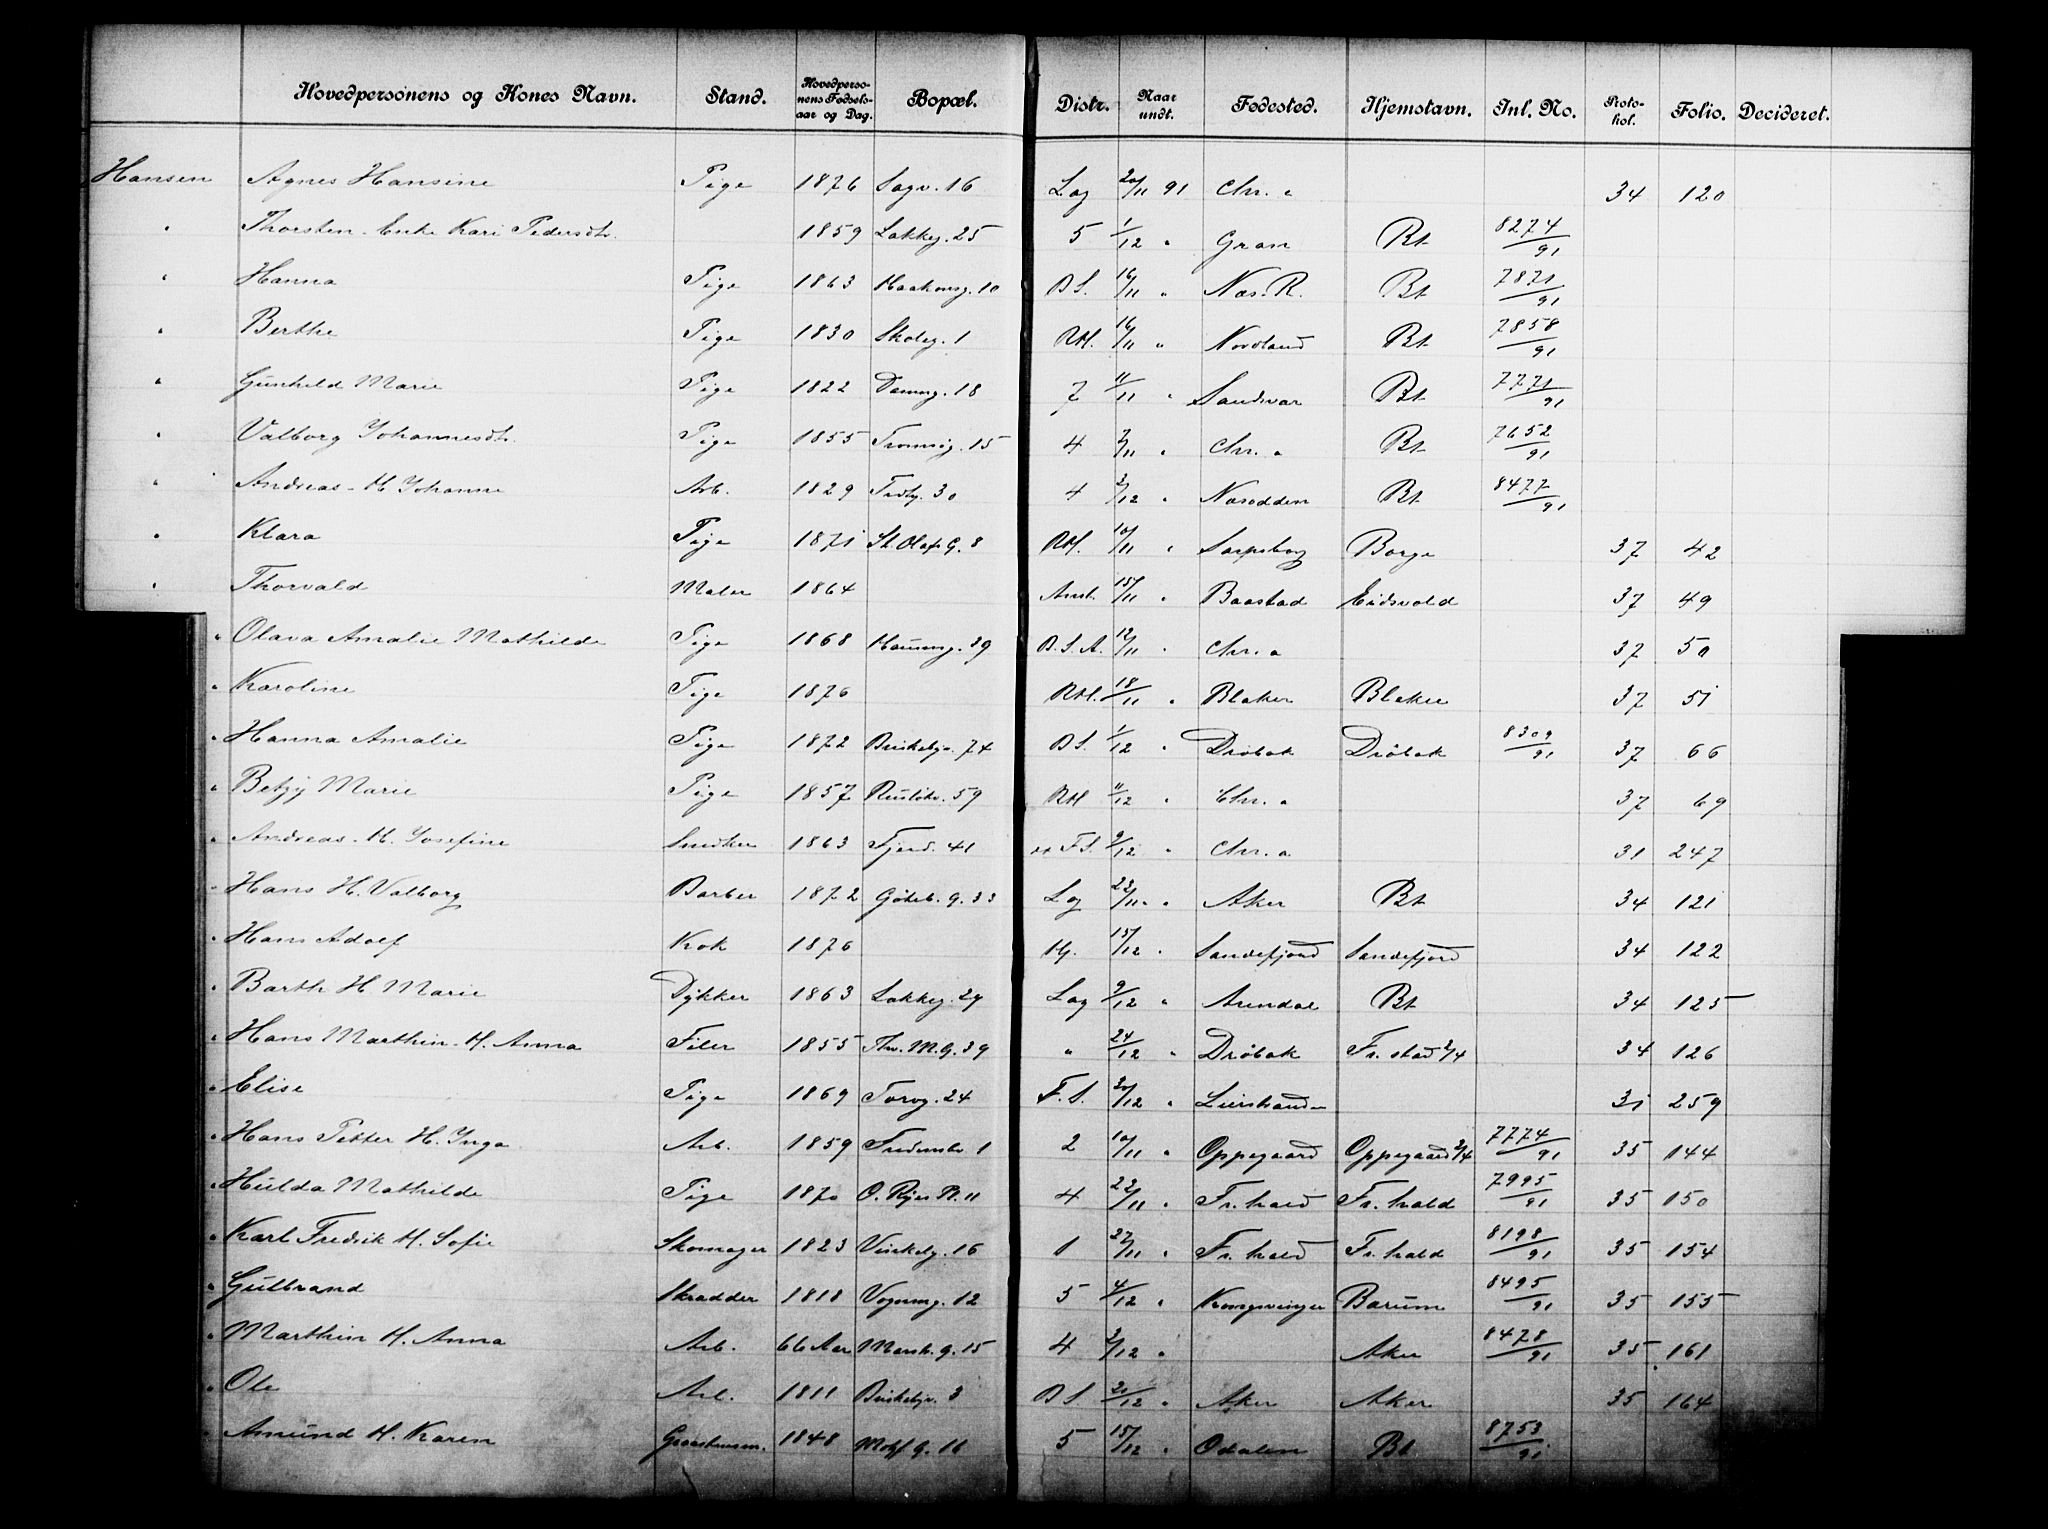 Hovedpersonens og Kones Navn. Stand. Hovedpersonens Fødselsaar og Dag. Bopæl. Distr. Naar undt. Fødested. Hjemstavn. Inl. No. Protokol. Folio. Decideret.
Hansen Agnes Hansine Pige 1876 Sagv. 16 Lag 20/11 91 Chr.a 34 120
" Thorsten - Enke Kari Pedersdtr. 1859 Lakkeg. 25 5 1/12 " Gran Bt 8274/91
" Hanna Pige 1863 Haakonsg. 10 B S. 16/11 " Næs. R. Bt 7871/91
" Berthe Pige 1830 Skoleg. 1 RH. 16/11 " Nordland Bt 7858/91
" Gunhild Marie Pige 1822 Damsg. 18 7 11/11 " Sandsvær Bt 7771/91
" Valborg Johannesdtr. Pige 1855 Tromsøg. 15 4 7/11 " Chr.a Bt 7652/91
" Andreas - H Johanne Arb. 1829 30 4 3/12 " Næsodden Bt 8477/91
" Klara Pige 1871 St. Olafs G. 8 RH. 10/11 " Sarpsborg Borge 37 42
" Thorvald Maler 1864 Amt. 15/11 " Baastad Eidsvold 37 49
" Olava Amalie Mathilde Pige 1868 Hausmg. 39 B. S. A. 12/11 " Chr.a 37 50
" Karoline Pige 1876 RH. 18/11 " Blaker Blaker 37 51
" Hanna Amalie Pige 1872 Briskebyv. 74 B S. 1/12 " Drøbak Drøbak 8309/91 37 66
" Betzy Marie Pige 1857 Ruseløkv. 59 RH 11/12 " Chr.a 37 69
" Andreas - H. Josefine Snedker 1863 Fjerd. 41 F. S. 9/12 " Chr.a 31 247
" Hans H. Valborg Barber 1872 Göteb. g. 33 Lag 23/11 " Aker Bt 34 121
" Hans Adolf Kok 1876 Hj. 15/12 " Sandefjord Sandefjord 34 122
" Barth H Marie Dykker 1863 Lakkeg. 29 Lag 9/12 " Arendal Bt 34 125
" Hans Marthin - H. Anna Filer 1855 Thv. M. G. 39 " 24/12 " Drøbak Fr. stad 2/4 34 126
" Elise Pige 1869 Torvg. 24 F. S. 30/12 " Lierstranden 31 259
" Hans Petter H. Inga Arb. 1859 Fredensb. 1 2 10/11 " Oppegaard Oppegaard 2/4 7774/91 35 144
" Hulda Mathilde Pige 1870 O. Ryes Pl. 11 4 22/11 " Fr. hald Fr. hald 7995/91 35 150
" Karl Fredrik H. Sofie Skomager 1823 Vinkelg. 16 1 27/11 " Fr. hald Fr. hald 8198/91 35 154
" Gulbrand Skrædder 1818 Vognmg. 12 5 4/12 " Kongsvinger Bærum 8495/91 35 155
" Marthin H. Anna Arb. 66 Aar Marstr. g. 15 4 3/12 " Aker 8478/91 35 161
" Ole Arb. 1811 Briskebyv. 3 B S. 21/12 " Aker Aker 35 164
" Amund H. Karen 1848 16 5 15/12 " Odalen Bt 8753/91